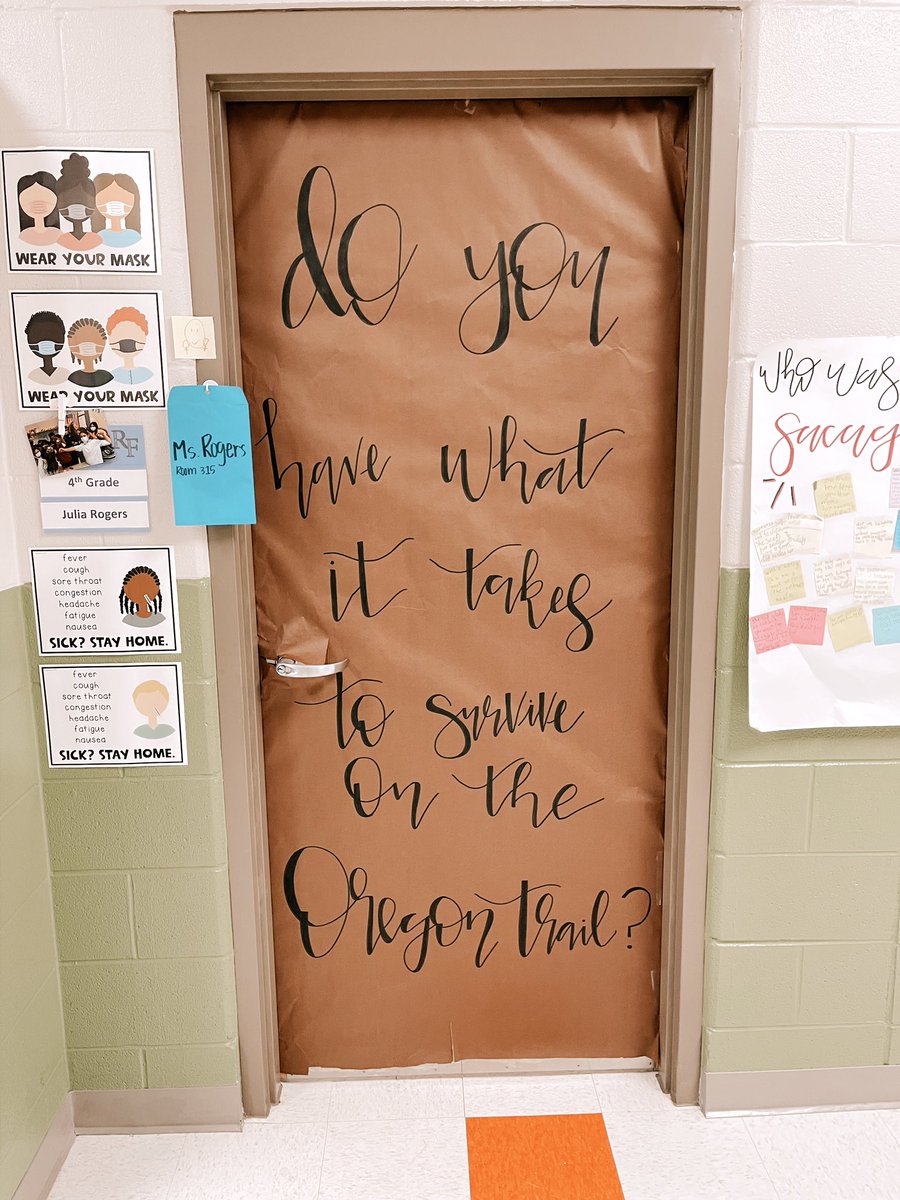 WEAR YOUR MASK
WEAR YOUR MASK
RF
4th Grade
Julia Rogers
Ms. Rogers
Room 315
fever
cough
sore throat
congestion
headache
fatigue
nausea
SICK? STAY HOME.
fever
cough
sore throat
congestion
headache
fatigue
nausea
SICK? STAY HOME.
do you
have what
it takes
to survive
on the
Oregon Trail?
Who was
Sacag